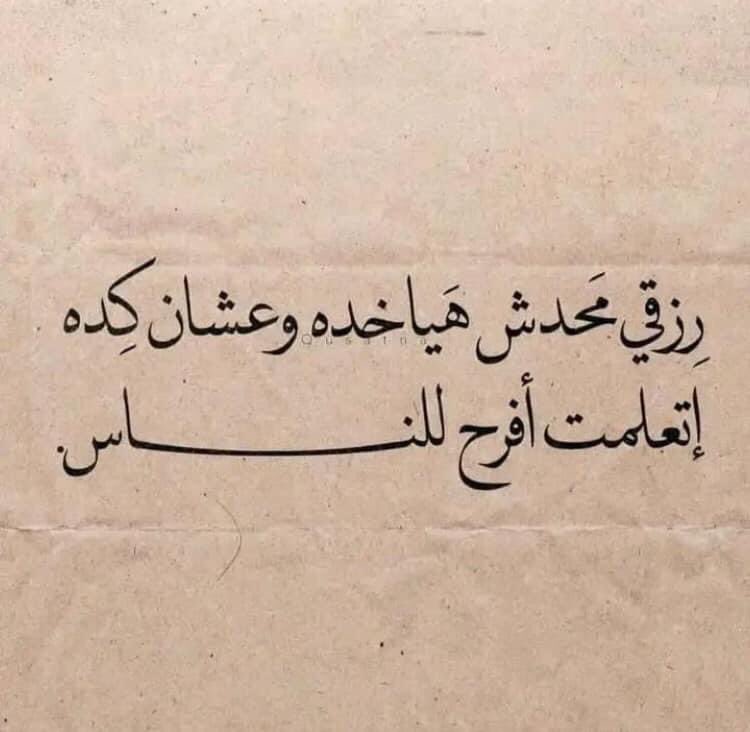 رِزقي مَحدش هَياخده وعشان كِده
Qusatna
إتعلمت أفرح للنـــــاس.